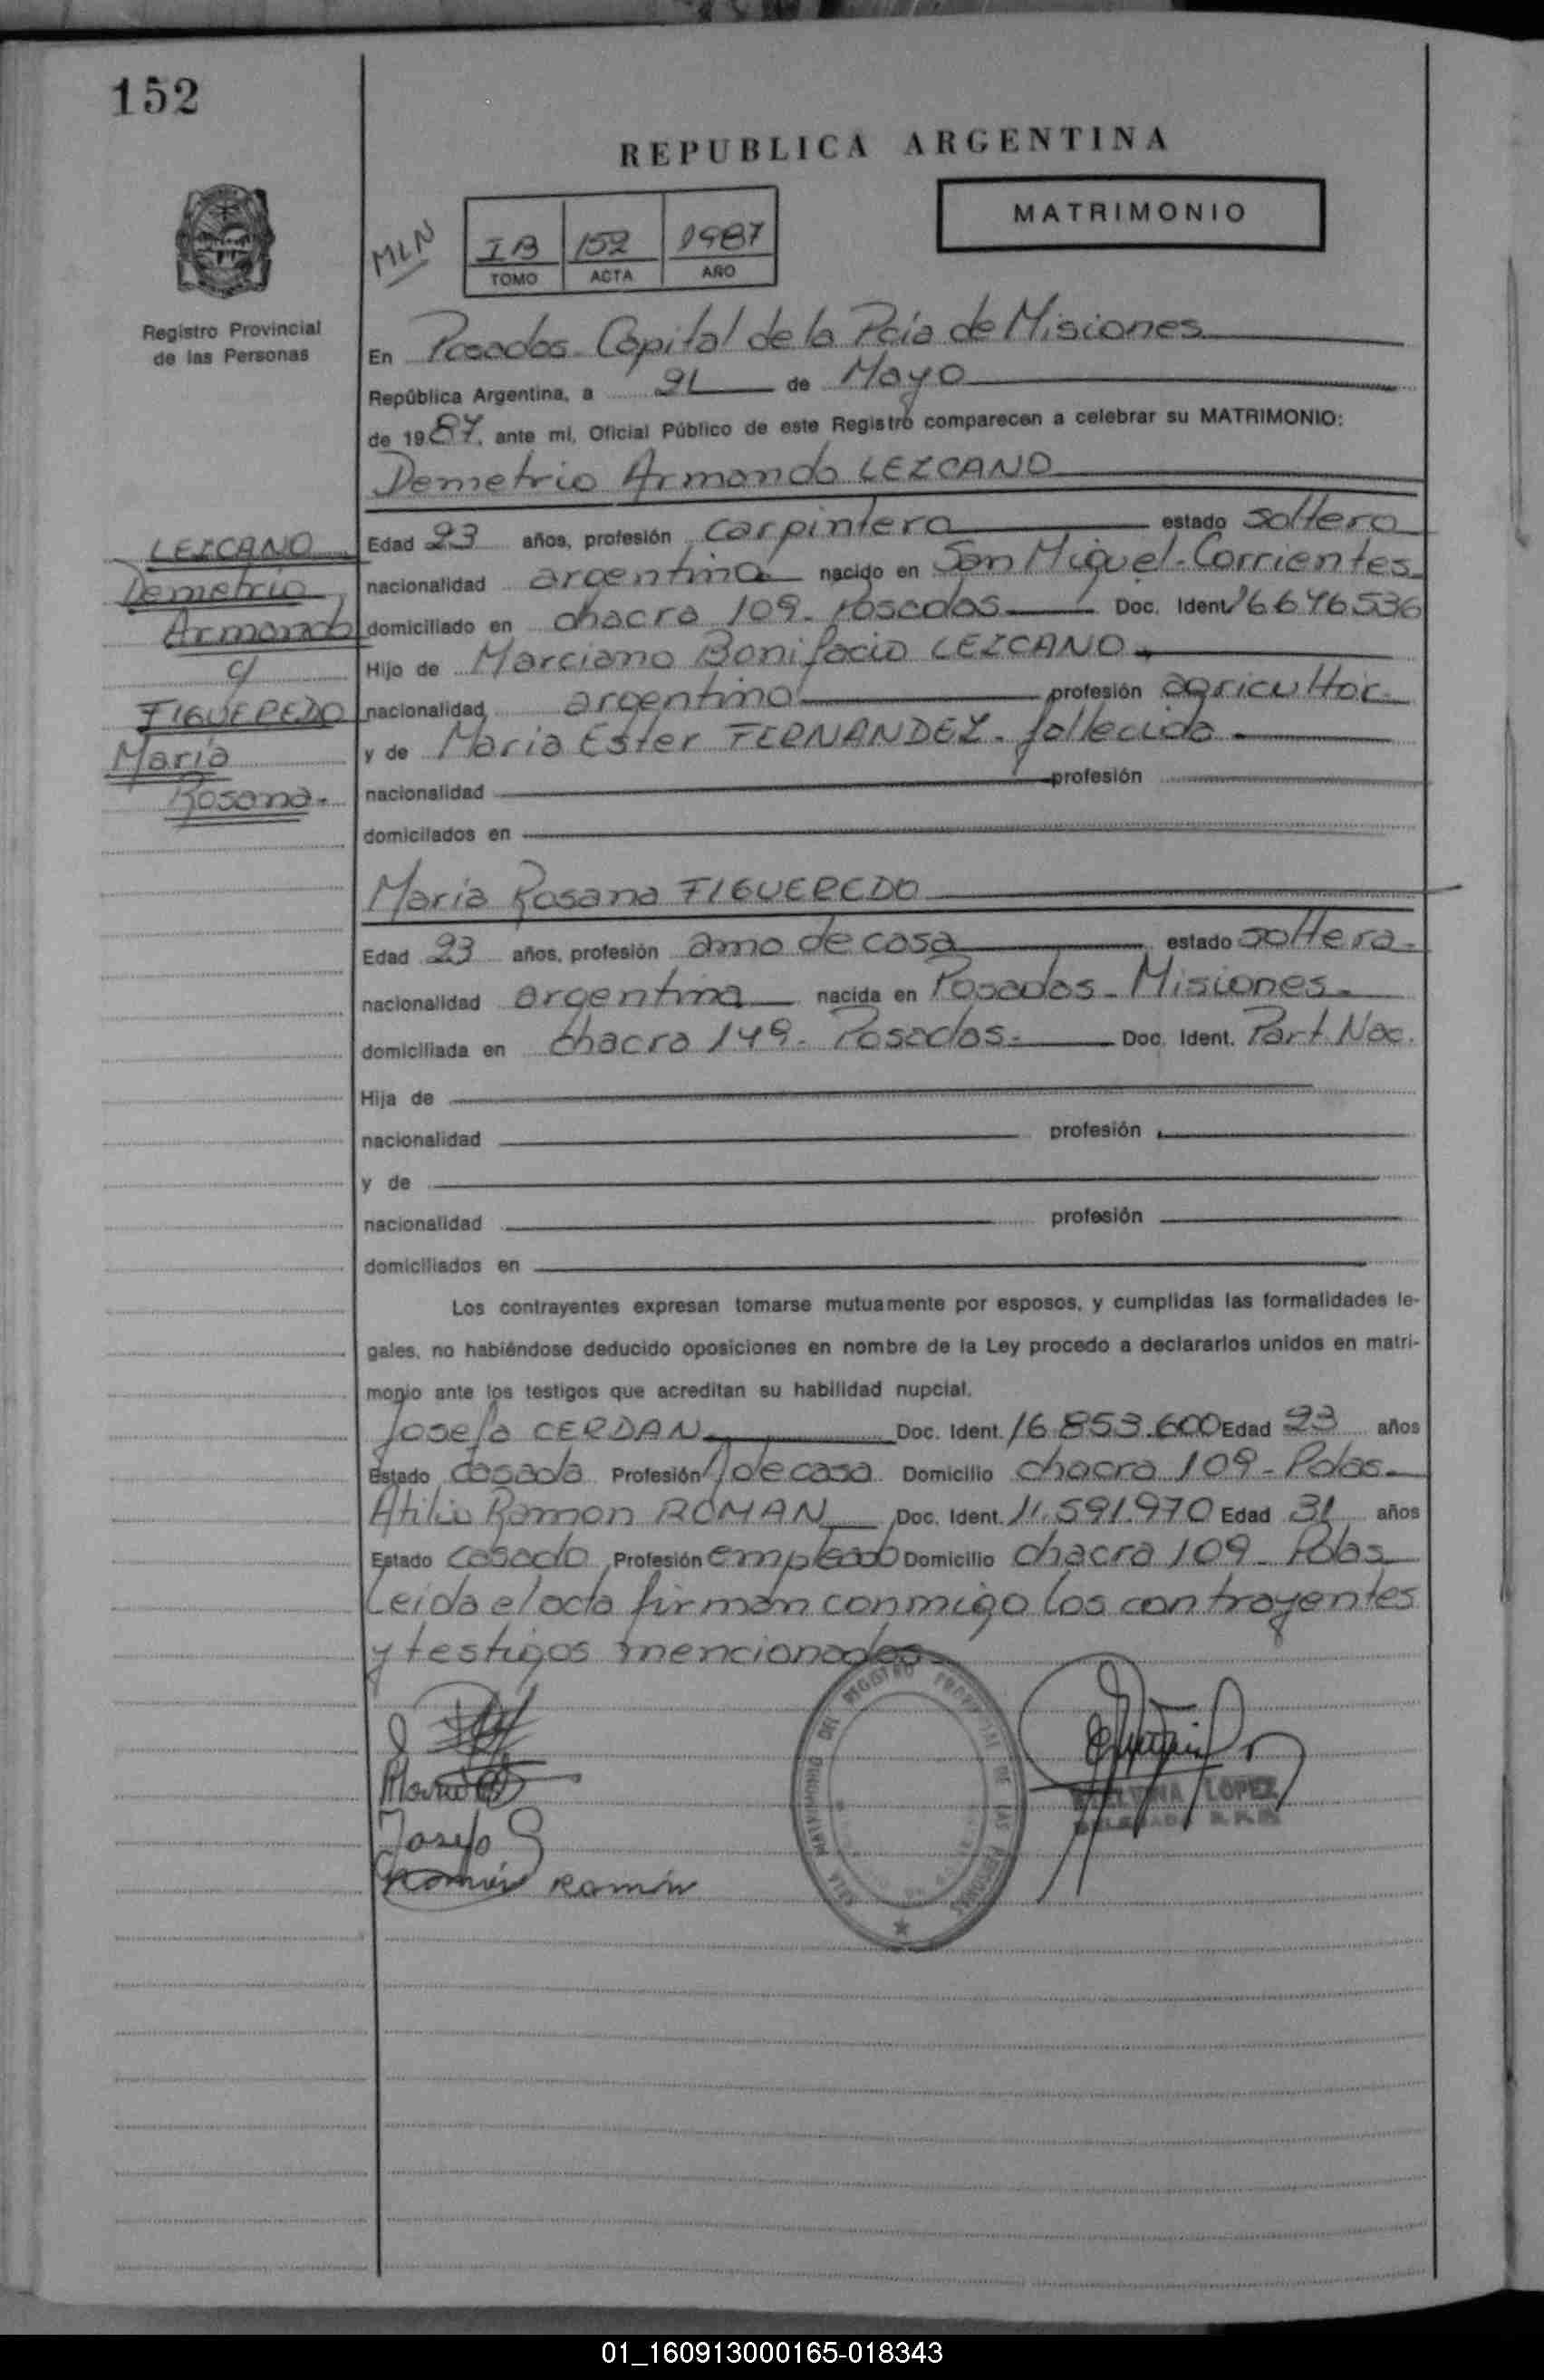 152
REPUBLICA ARGENTINA
MATRIMONIO
MLN
IB 152 1987
TOMO ACTA AÑO
Registro Provincial
de las Personas
En Posadas Capital de la Pcia de Misiones
República Argentina, a 21 de Mayo
de 1987, ante mi, Oficial Público de este Registro comparecen a celebrar su MATRIMONIO:
Demetrio Armando LEZCANO
LEZCANO
Demetrio
Armando
c/
FIGUEREDO
María
Rosana.
Edad 23 años, profesión carpintero estado soltero
nacionalidad argentina nacido en San Miguel-Corrientes
domiciliado en chacra 109. Posadas Doc. Ident. 16646536
Hijo de Marciano Bonifacio LEZCANO
nacionalidad argentino profesión agricultor.
y de Maria Ester FERNANDEZ. fallecida.
nacionalidad profesión
domicilados en
María Rosana FIGUEREDO
Edad 23 años, profesión ama de casa estado soltera.
nacionalidad argentina nacida en Posadas. Misiones.
domiciliada en chacra 149. Posadas. Doc. Ident. Part. Nac.
Hija de
nacionalidad profesión
y de
nacionalidad profesión
domiciliados en
Los contrayentes expresan tomarse mutuamente por esposos, y cumplidas las formalidades le-
gales, no habiéndose deducido oposiciones en nombre de la Ley procedo a declararlos unidos en matri-
monio ante los testigos que acreditan su habilidad nupcial.
Josefa CERDAN Doc. Ident. 16.853.600 Edad 23 años
Estado casada Profesión A/de casa Domicilio chacra 109 - Pdas.
Atilio Ramon ROMAN Doc. Ident. 11.591.970 Edad 31 años
Estado casado Profesión empleado Domicilio chacra 109 - Pdas
Leida el acta firman conmigo los contrayentes
y testigos mencionados.
Josefa
Román Ramón
REGISTRO PROVINCIAL DE LAS PERSONAS
LOPEZ
01_160913000165-018343